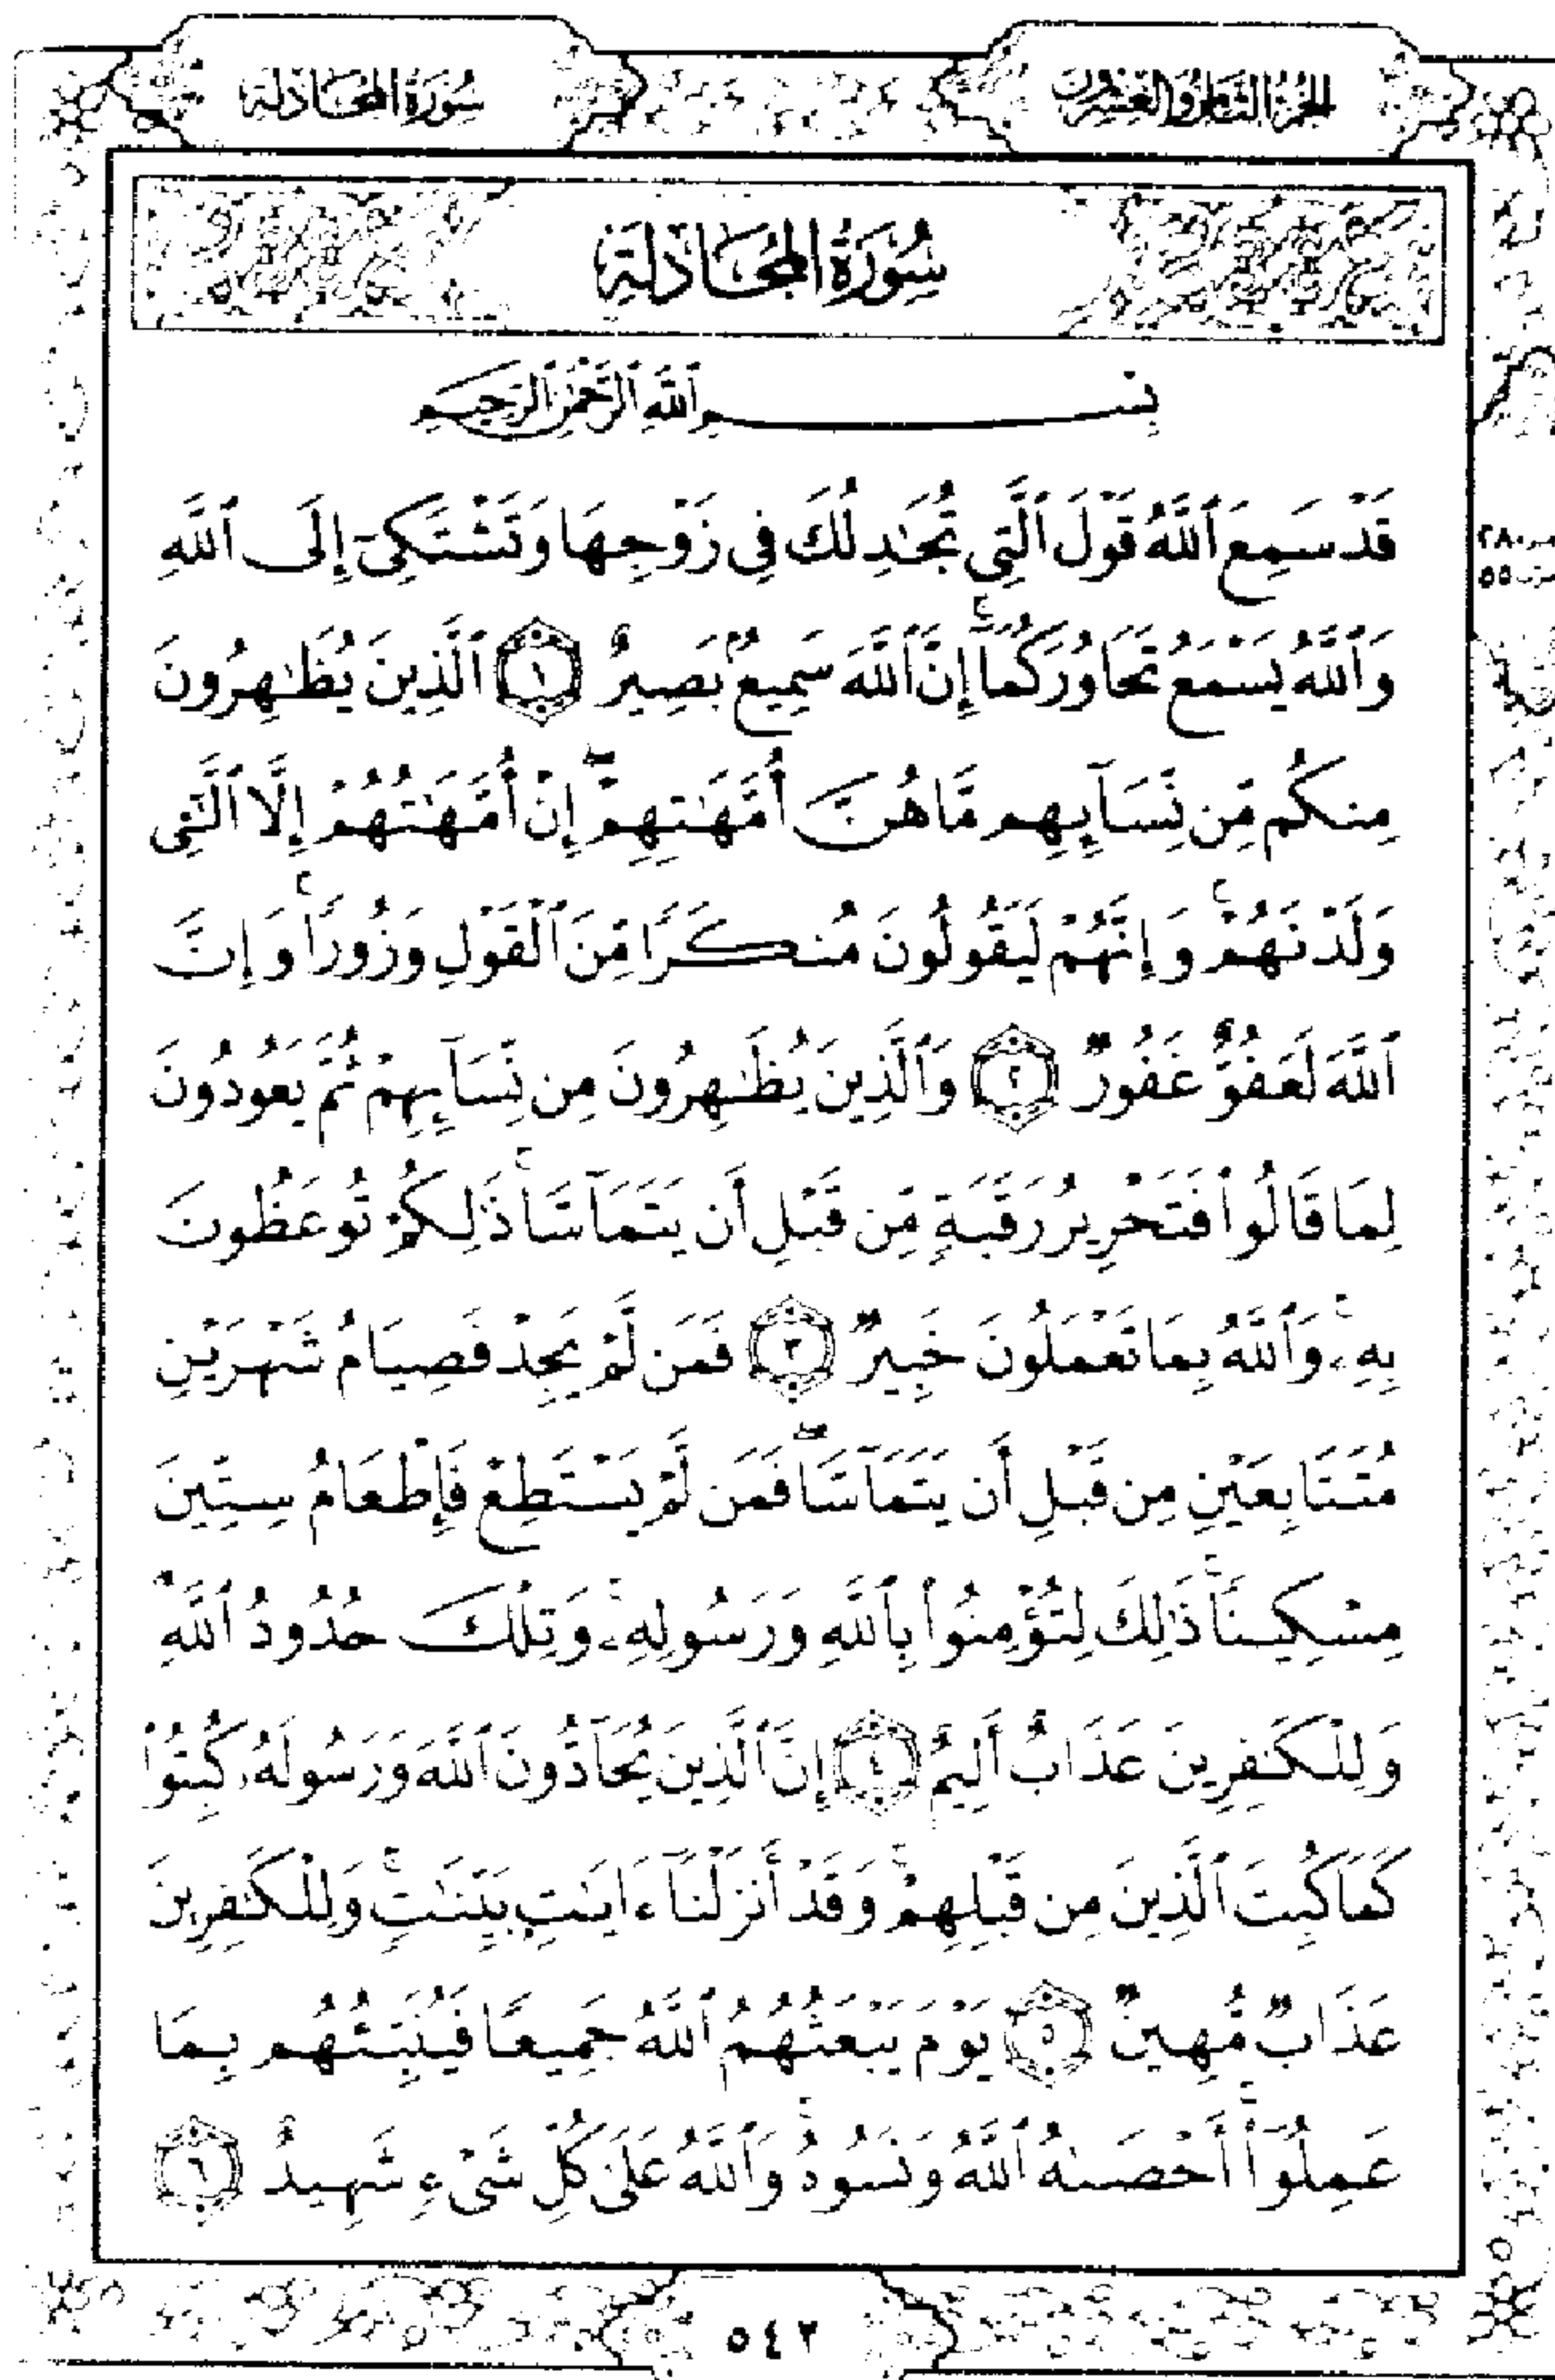 الجزء الثامن والعشرون
سورة المجادلة
سُورَةُ المُجَادلَةِ
بِسْمِ ٱللَّهِ ٱلرَّحْمَٰنِ ٱلرَّحِيمِ
قَدْ سَمِعَ ٱللَّهُ قَوْلَ ٱلَّتِي تُجَٰدِلُكَ فِي زَوْجِهَا وَتَشْتَكِيٓ إِلَى ٱللَّهِ
وَٱللَّهُ يَسْمَعُ تَحَاوُرَكُمَآۚ إِنَّ ٱللَّهَ سَمِيعُۢ بَصِيرٌ ١ ٱلَّذِينَ يُظَٰهِرُونَ
مِنكُم مِّن نِّسَآئِهِم مَّا هُنَّ أُمَّهَٰتِهِمْۖ إِنْ أُمَّهَٰتُهُمْ إِلَّا ٱلَّٰٓـِٔي
وَلَدْنَهُمْۚ وَإِنَّهُمْ لَيَقُولُونَ مُنكَرًا مِّنَ ٱلْقَوْلِ وَزُورًاۚ وَإِنَّ
ٱللَّهَ لَعَفُوٌّ غَفُورٌ ٢ وَٱلَّذِينَ يُظَٰهِرُونَ مِن نِّسَآئِهِمْ ثُمَّ يَعُودُونَ
لِمَا قَالُوا۟ فَتَحْرِيرُ رَقَبَةٍ مِّن قَبْلِ أَن يَتَمَآسَّاۚ ذَٰلِكُمْ تُوعَظُونَ
بِهِۦۚ وَٱللَّهُ بِمَا تَعْمَلُونَ خَبِيرٌ ٣ فَمَن لَّمْ يَجِدْ فَصِيَامُ شَهْرَيْنِ
مُتَتَابِعَيْنِ مِن قَبْلِ أَن يَتَمَآسَّاۖ فَمَن لَّمْ يَسْتَطِعْ فَإِطْعَامُ سِتِّينَ
مِسْكِينًاۚ ذَٰلِكَ لِتُؤْمِنُوا۟ بِٱللَّهِ وَرَسُولِهِۦۚ وَتِلْكَ حُدُودُ ٱللَّهِۗ
وَلِلْكَٰفِرِينَ عَذَابٌ أَلِيمٌ ٤ إِنَّ ٱلَّذِينَ يُحَآدُّونَ ٱللَّهَ وَرَسُولَهُۥ كُبِتُوا۟
كَمَا كُبِتَ ٱلَّذِينَ مِن قَبْلِهِمْۚ وَقَدْ أَنزَلْنَآ ءَايَٰتِۭ بَيِّنَٰتٍۚ وَلِلْكَٰفِرِينَ
عَذَابٌ مُّهِينٌ ٥ يَوْمَ يَبْعَثُهُمُ ٱللَّهُ جَمِيعًا فَيُنَبِّئُهُم بِمَا
عَمِلُوٓا۟ۚ أَحْصَىٰهُ ٱللَّهُ وَنَسُوهُۚ وَٱللَّهُ عَلَىٰ كُلِّ شَيْءٍ شَهِيدٌ ٦
٥٤٢